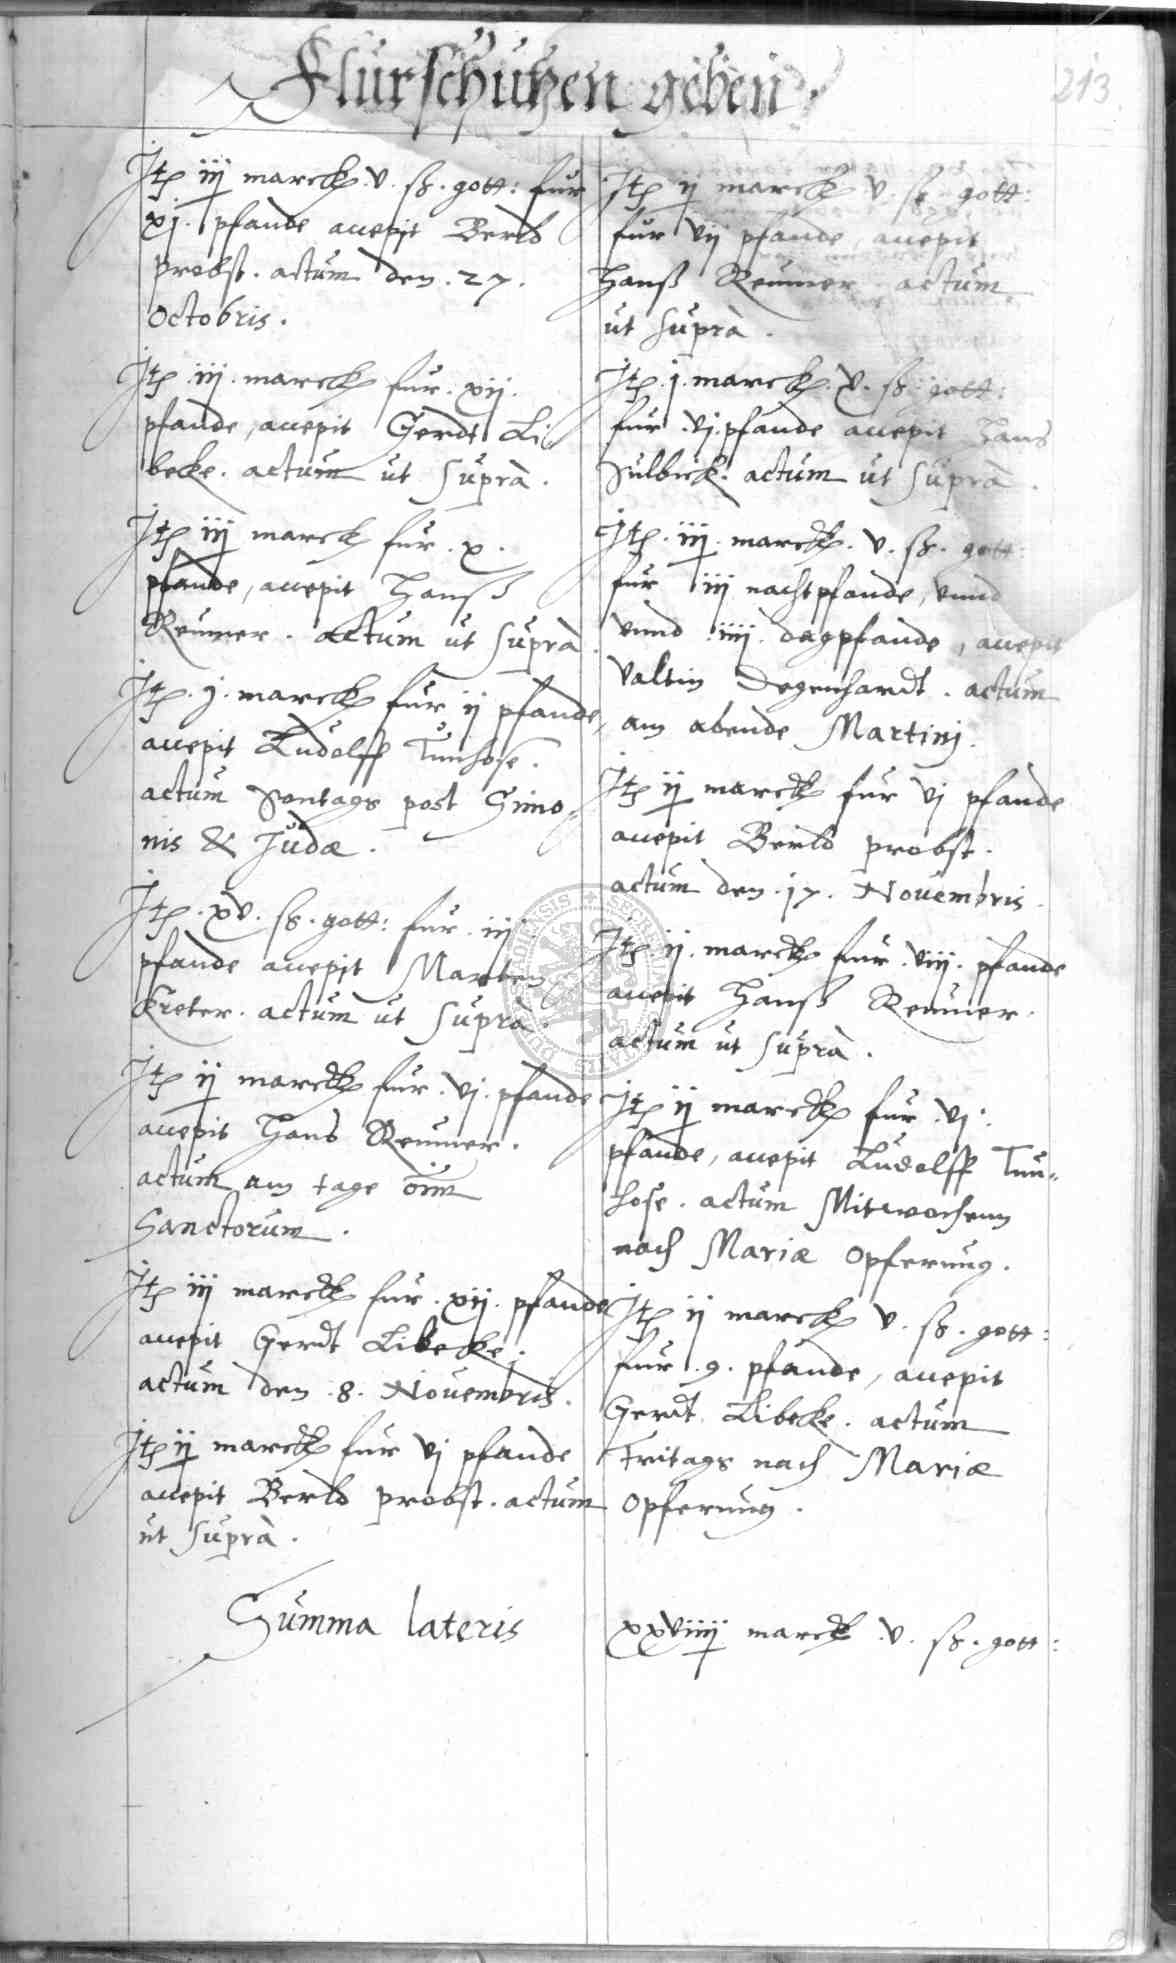 Flurschutzen geben
213
Jtem iij marck v. sz. gott: fur
xj. pfande accepit Berld
probst. actum den. 27.
Octobris.
Jtem iij. marck fur. xij.
pfande, accepit Gerdt Li
becke. actum ut suprà.
Jtem iij marck fur. x.
pfande, accepit Hansz
Reumer. actum ut suprà.
Jtem. j. marck fur ij pfande,
accepit Ludolff Tunhose.
actum Sontags post Simo
nis & Judæ.
Jtem. xv. sz. gott: fur. iij
pfande accepit Marten
Kreter. actum ut suprà.
Jtem ij marck fur. vj. pfande
accepit Hans Reumer.
actum am tage oim
Sanctorum.
Jtem iij marck fur. xij. pfande
accepit Gerdt Libecke.
actum den. 8. Nouembris.
Jtem ij marck fur vj pfande
accepit Berld probst. actum
ut suprà.
Jtem ij marck v. sz. gott:
fur vij pfande, accepit
Hansz Reumer actum
ut suprà.
Jtem. j. marck. v. sz. gott:
fur. vj. pfande accepit Hans
Sulbick. actum ut suprà.
Jtem. iij. marck. v. sz. gott:
fur iij nachtpfande, vnnd
vnnd. iiij. dagpfande, accepit
Valtin Degenhardt. actum
am abende Martinj.
Jtem ij marck fur vj pfande
accepit Berld probst.
actum den. 17. Nouembris.
Jtem ij. marck fur. viij. pfande
accepit Hansz Reumer.
actum ut suprà.
Jtem ij marck fur. vj.
pfande, accepit Ludolff Tun
hose. actum Mitwochenn
nach Mariæ Opferung.
Jtem ij marck v. sz. gott:
fur. 9. pfande, accepit
Gerdt Libecke. actum
Freitags nach Mariæ
Opferung.
Summa lateris
xxviiij marck. v. sz. gott: